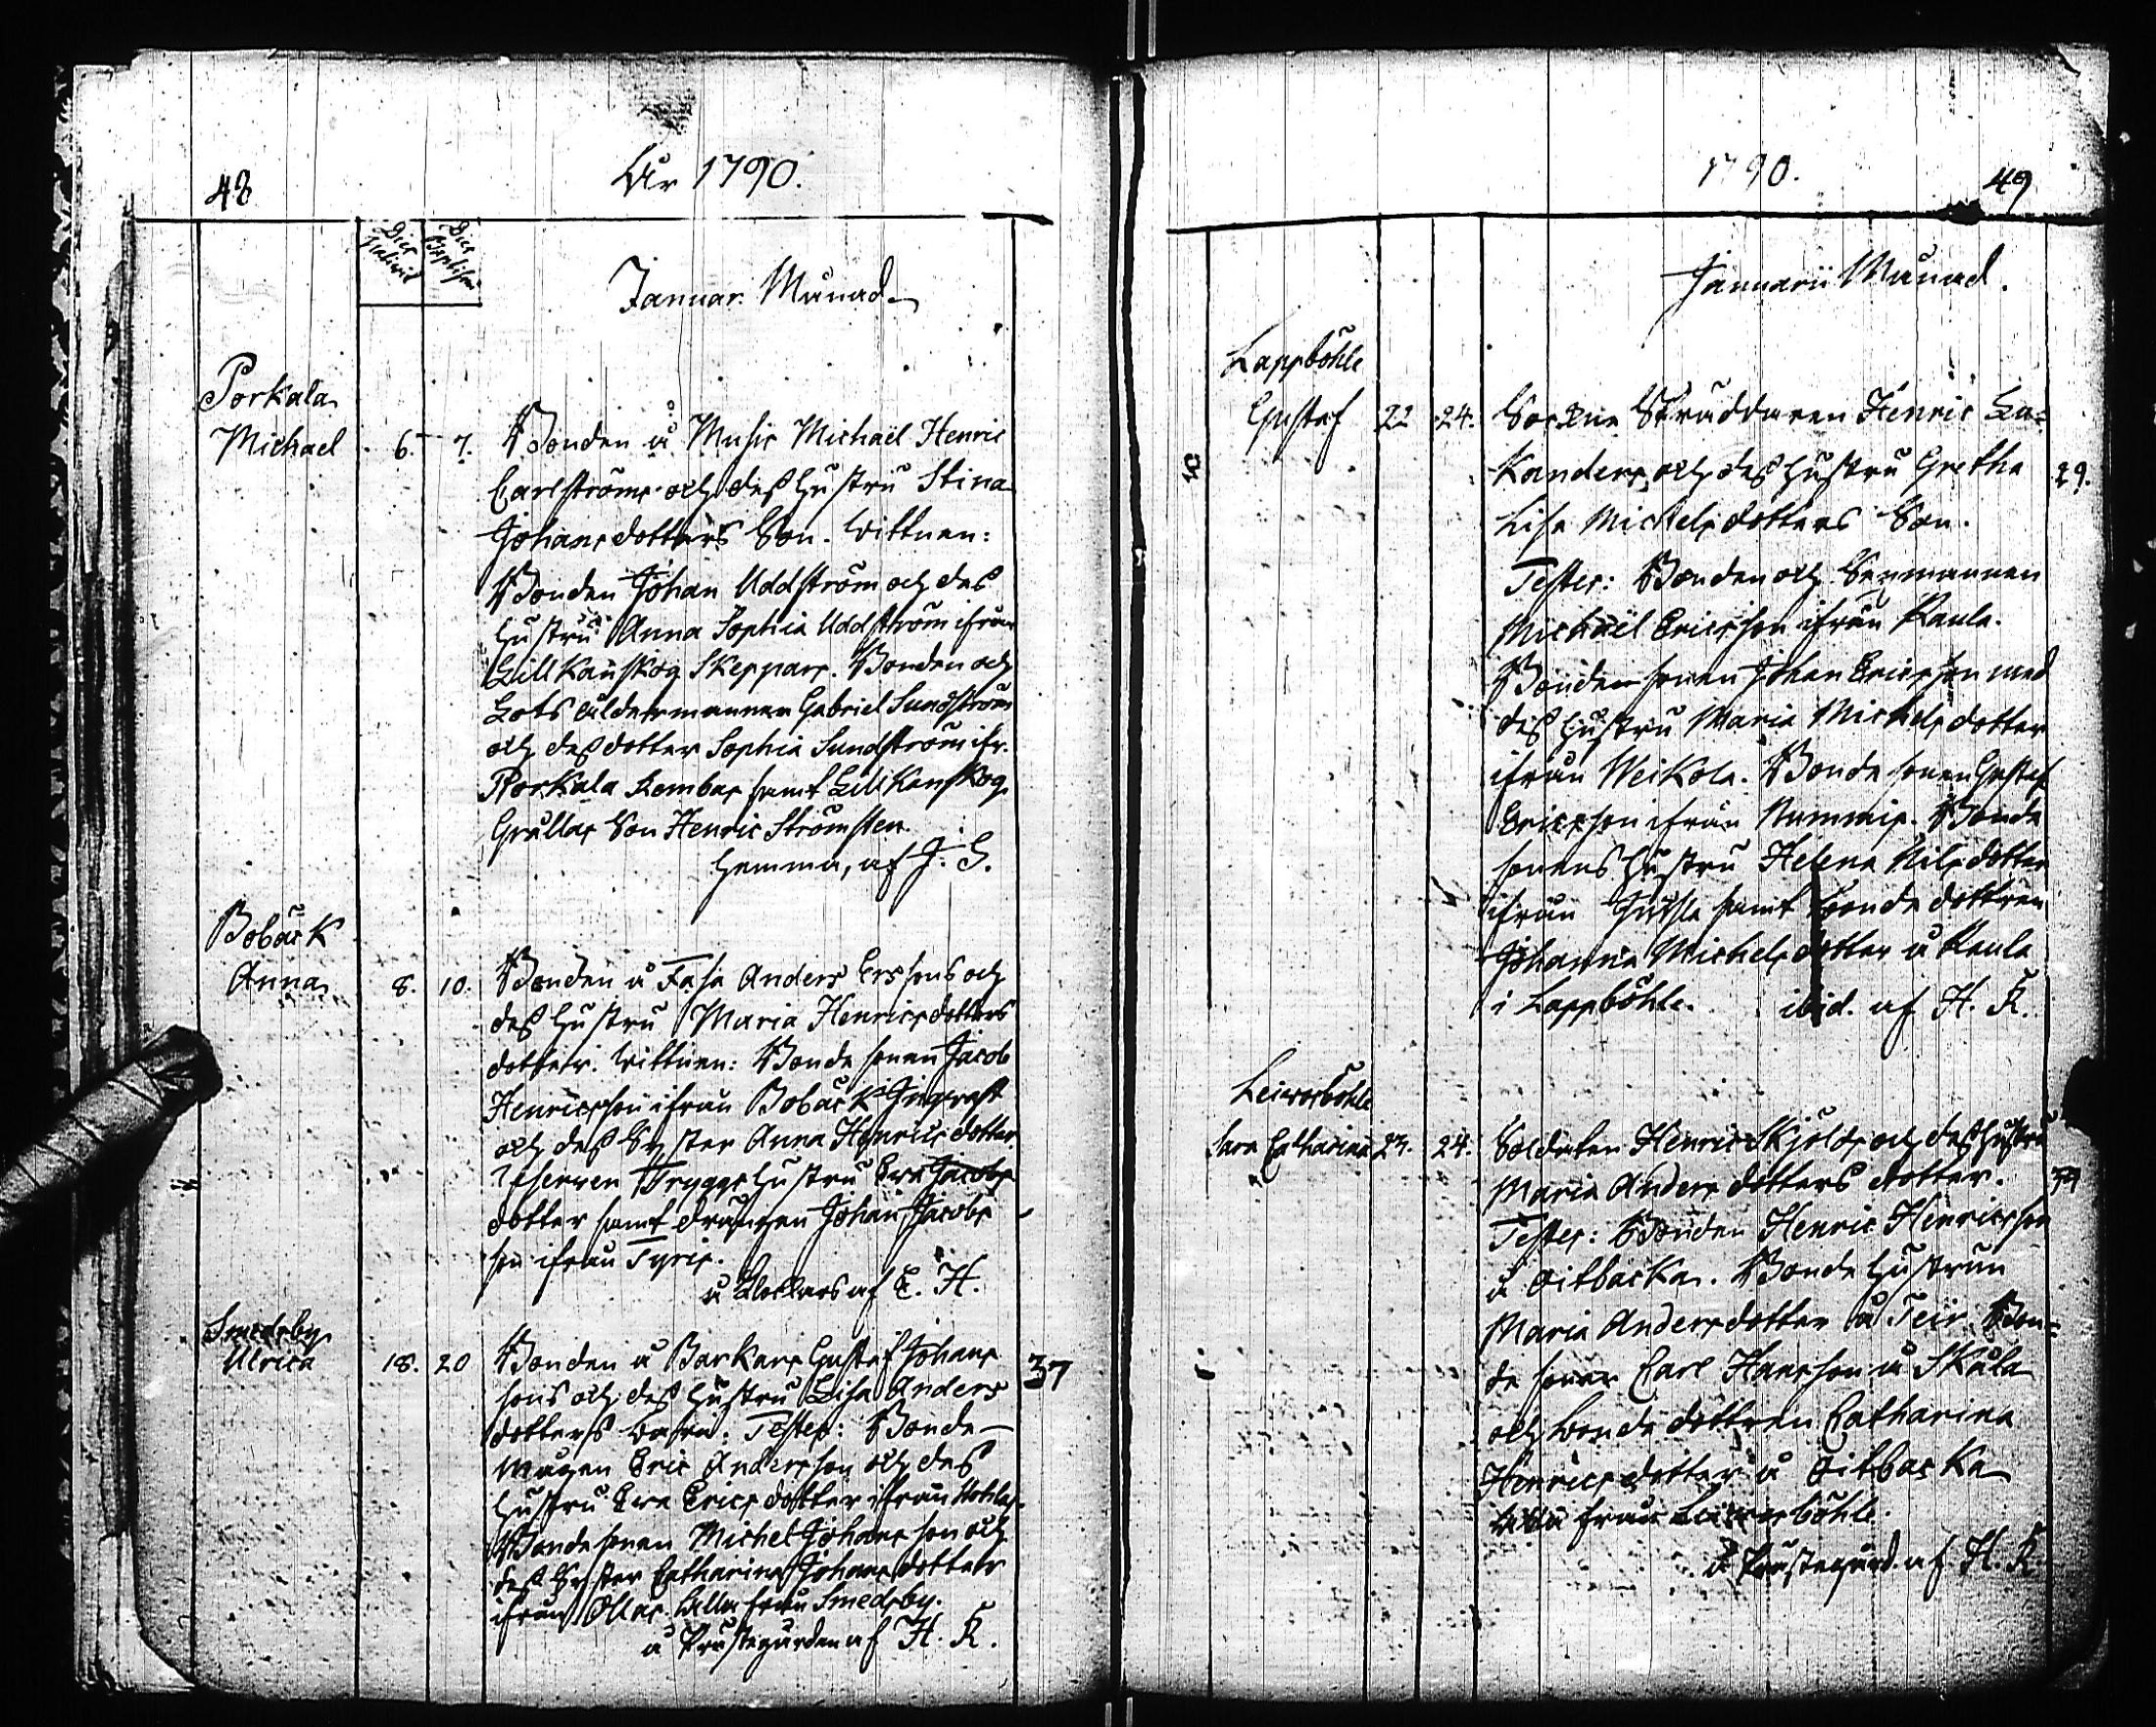 48
År 1790.
Dies Natalis
Dies Baptismi
Januar. Månad
Porkala
Michael 6. 7. Bonden å Musis Michaël Henric
Carlströms och dess hustru Stina
Johansdotters Son. Wittnen:
Bonden Johan Uddström och des
hustru Anna Sophia Uddström ifrån
Lill Kanskog Skeppars. Bonden och
Lots åldermannen Gabriel Sundström
och dess dotter Sophia Sundström ifr.
Porkala Rembas samt Lill Kanskog
Grullas Son Henric Strömsten.
hemma, af J. S.
Bobäck
Anna 8. 10. Bonden å Fasa Anders Ersons och
dess hustru Maria Henricsdotters
dotter. Wittnen: Bonde sonen Jacob
Henricsson ifrån Bobäck
och dess Syster Anna Henricsdotter.
Tryggs hustru Eva Jacobs
dotter samt drängen Johan Jacobs
son ifrån Tyris.
å Klockars af E. H.
Smedsby
Ulrica 18. 20 Bonden å Barkars Gustaf Johans
sons och dess hustru Lisa Anders
dotters barn. Testes: Bonde
mågen Eric Andersson och des
hustru Eva Ericsdotter ifrån
Bondesonen Michel Johansson och
dess Syster Catharina Johansdotter
ifrån Ollas. alla från Smedsby.
å Prästegården af H. K.
37
1790.
49
Januarii Månad.
Lappböhle
Gustaf 22 24. Sockne Skräddaren Henric La=
kanders, och dess hustru Gretha
Lisa Michelsdotters Son.
29.
Testes: Bonden och Sexmannen
Michaël Ericsson ifrån Paula.
Bondesonen Johan Ericsson med
dess hustru Maria Michelsdotter
ifrån Weikola. Bonde sonen Gustaf
Ericsson ifrån Nummis. Bonde
sonens hustru Helena Nilsdotter
ifrån samt bonde dottren
Johanna Michelsdotter å Paula
i Lappböhle. ibid. af H. K.
Leivosböhle
Sara Catharina 23. 24. Soldaten Henric Skjölds och dess hustru
Maria Andersdotters dotter.
Testes: Bonden Henric Henricsson
å Oitbacka. Bonde hustrun
Maria Andersdotter å Teir. Bon=
de sonen Carl Hansson å Skåla
och bonde dottren Catharina
Henricsdotter å Oitbacka
alla från Leivosböhle.
å Prästegård. af H. K.